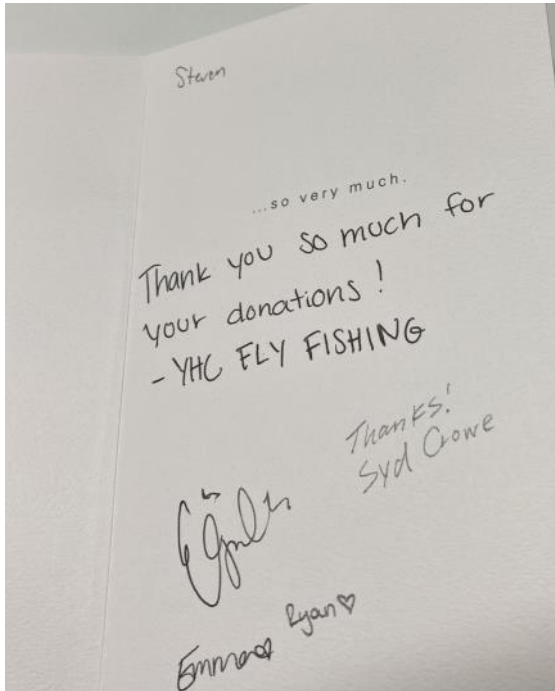 Steven
...so very much.
Thank you so much for
your donations!
- YHC FLY FISHING
Thanks!
Syd Crowe
Ryan♡
Emma